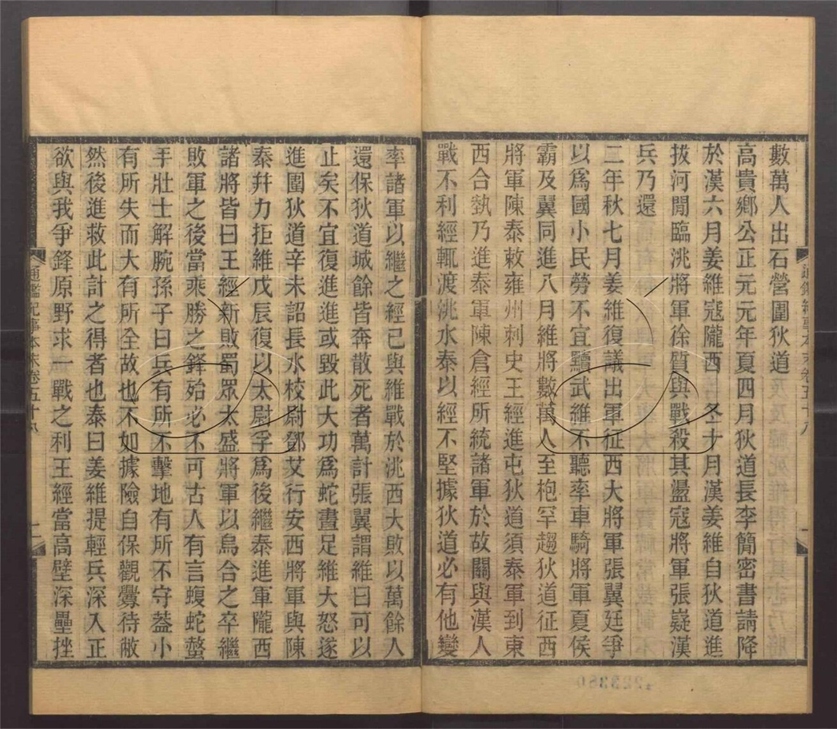 數萬人出石營圍狄道
高貴鄉公正元元年夏四月狄道長李簡密書請降
於漢六月姜維寇隴西 冬十月漢姜維自狄道進
拔河閒臨洮將軍徐質與戰殺其盪寇將軍張嶷漢
兵乃還
二年秋七月姜維復議出軍征西大將軍張翼廷爭
以爲國小民勞不宜黷武維不聽率車騎將軍夏侯
霸及翼同進八月維將數萬人至枹罕趨狄道征西
將軍陳泰敕雍州刺史王經進屯狄道須泰軍到東
西合埶乃進泰軍陳倉經所統諸軍於故關與漢人
戰不利經輒渡洮水泰以經不堅據狄道必有他變
率諸軍以繼之經已與維戰於洮西大敗以萬餘人
還保狄道城餘皆奔散死者萬計張翼謂維曰可以
止矣不宜復進進或毀此大功爲蛇畫足維大怒遂
進圍狄道辛未詔長水校尉鄧艾行安西將軍與陳
泰幷力拒維戊辰復以太尉孚爲後繼泰進軍隴西
諸將皆曰王經新敗蜀眾太盛將軍以烏合之卒繼
敗軍之後當乘勝之鋒殆必不可古人有言蝮蛇螫
手壯士解腕孫子曰兵有所不擊地有所不守葢小
有所失而大有所全故也不如據險自保觀釁待敝
然後進救此計之得者也泰曰姜維提輕兵深入正
欲與我爭鋒原野求一戰之利王經當高壁深壘挫
通鑑紀事本末卷五十八